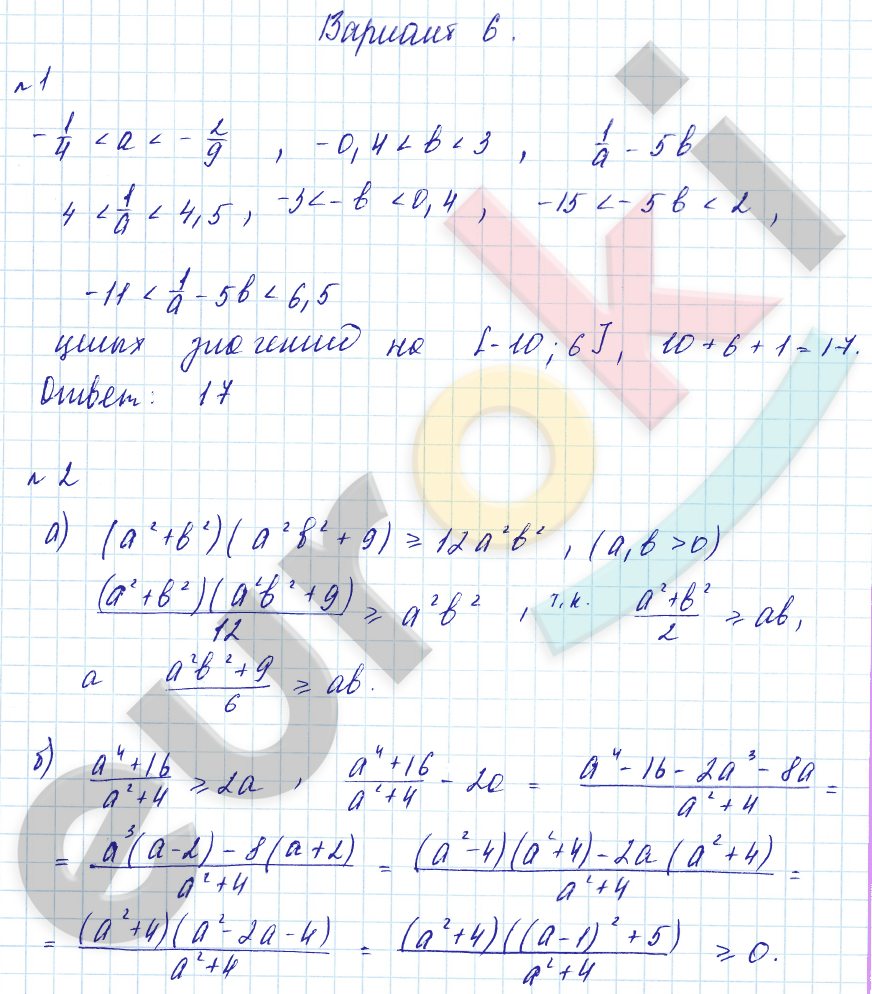 Вариант 6.
№1
-1/4 < a < -2/9 , -0,4 < b < 3 , 1/a - 5b
4 < 1/a < 4,5 , -3 < -b < 0,4 , -15 < -5b < 2 ,
-11 < 1/a - 5b < 6,5
целых значений на [-10; 6], 10 + 6 + 1 = 17.
Ответ: 17
№2
а) (a² + b²)(a²b² + 9) ≥ 12a²b² , (a, b > 0)
(a² + b²)(a²b² + 9)/12 ≥ a²b² , т.к. (a² + b²)/2 ≥ ab,
а (a²b² + 9)/6 ≥ ab.
б) (a⁴ + 16)/(a² + 4) ≥ 2a , (a⁴ + 16)/(a² + 4) - 2a = (a⁴ - 16 - 2a³ - 8a)/(a² + 4) =
= (a³(a - 2) - 8(a + 2))/(a² + 4) = ((a² - 4)(a² + 4) - 2a(a² + 4))/(a² + 4) =
= (a² + 4)(a² - 2a - 4)/(a² + 4) = (a² + 4)((a - 1)² + 5)/(a² + 4) ≥ 0.
euroki